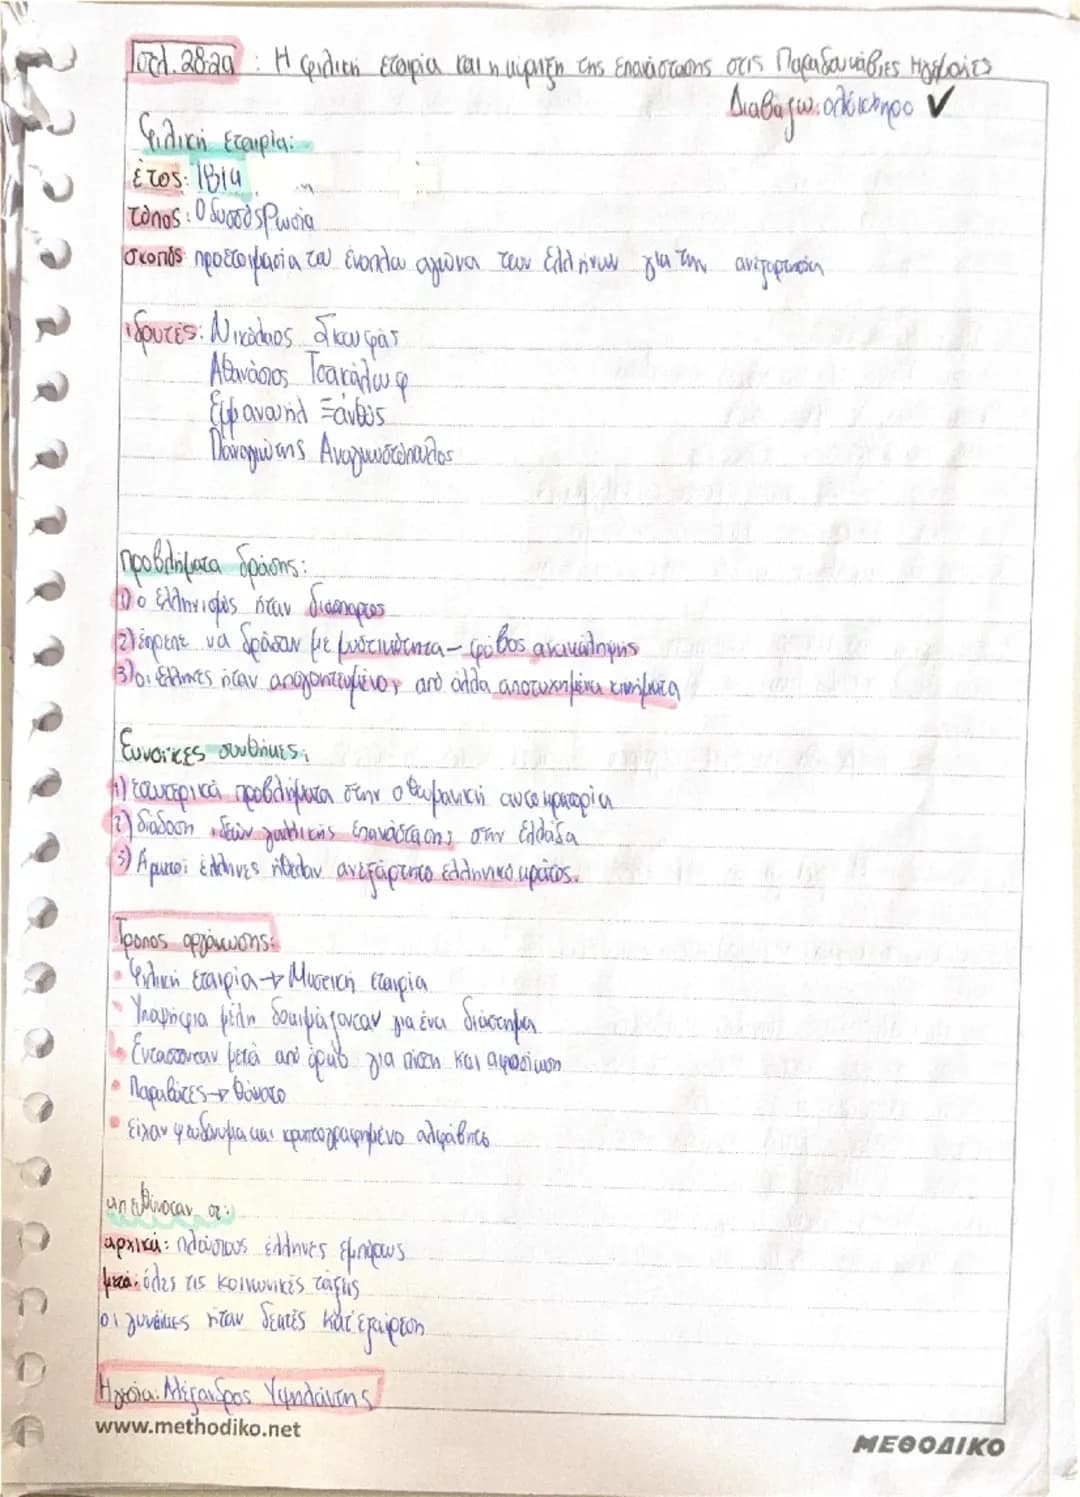 σελ. 28-29 : Η φιλική εταιρία και η κήρυξη της επανάστασης στις Παραδουνάβιες Ηγεμονίες
Διαβάζω: ολόκληρο ✓
Φιλική εταιρία:
έτος: 1814
τόπος: Οδυσσός Ρωσία
σκοπός προετοιμασία του ένοπλου αγώνα των Ελλήνων για την ανεξαρτησία
ιδρυτές: Νικόλαος Σκουφάς
Αθανάσιος Τσακάλωφ
Εμμανουήλ Ξάνθος
Παναγιώτης Αναγνωστόπουλος
προβλήματα δράσης:
1) ο ελληνισμός ήταν διάσπαρτος
2) έπρεπε να δράσαν με μυστικότητα - φόβος ανακάλυψης
3) οι έλληνες ήταν απογοητευμένοι από άλλα αποτυχημένα κινήματα
Ευνοϊκες συνθήκες:
1) εσωτερικά προβλήματα στην οθωμανική αυτοκρατορία
2) διάδοση ιδεών γαλλικής επανάστασης στην Ελλάδα
3) Αρκετοί έλληνες ήθελαν ανεξάρτητο ελληνικο κράτος.
Τρόπος οργάνωσης:
• Φιλική εταιρία → Μυστική εταιρία
• Υποψήφια μέλη δοκιμάζονταν για ένα διάστημα
↳ Εντάσσονταν μετά από όρκο για πίστη και αφοσίωση
• Παραβάτες → θάνατο
• είχαν ψευδώνυμα και κρυπτογραφημένο αλφάβητο
απευθύνοταν σε:
αρχικά: πλούσιους έλληνες εμπόρους
μετά: όλες τις κοινωνικές τάξεις
οι γυναίκες ήταν δεκτές κατ' εξαίρεση
Ηγεσία: Αλέξανδρος Υψηλάντης
www.methodiko.net
ΜΕΘΟΔΙΚΟ